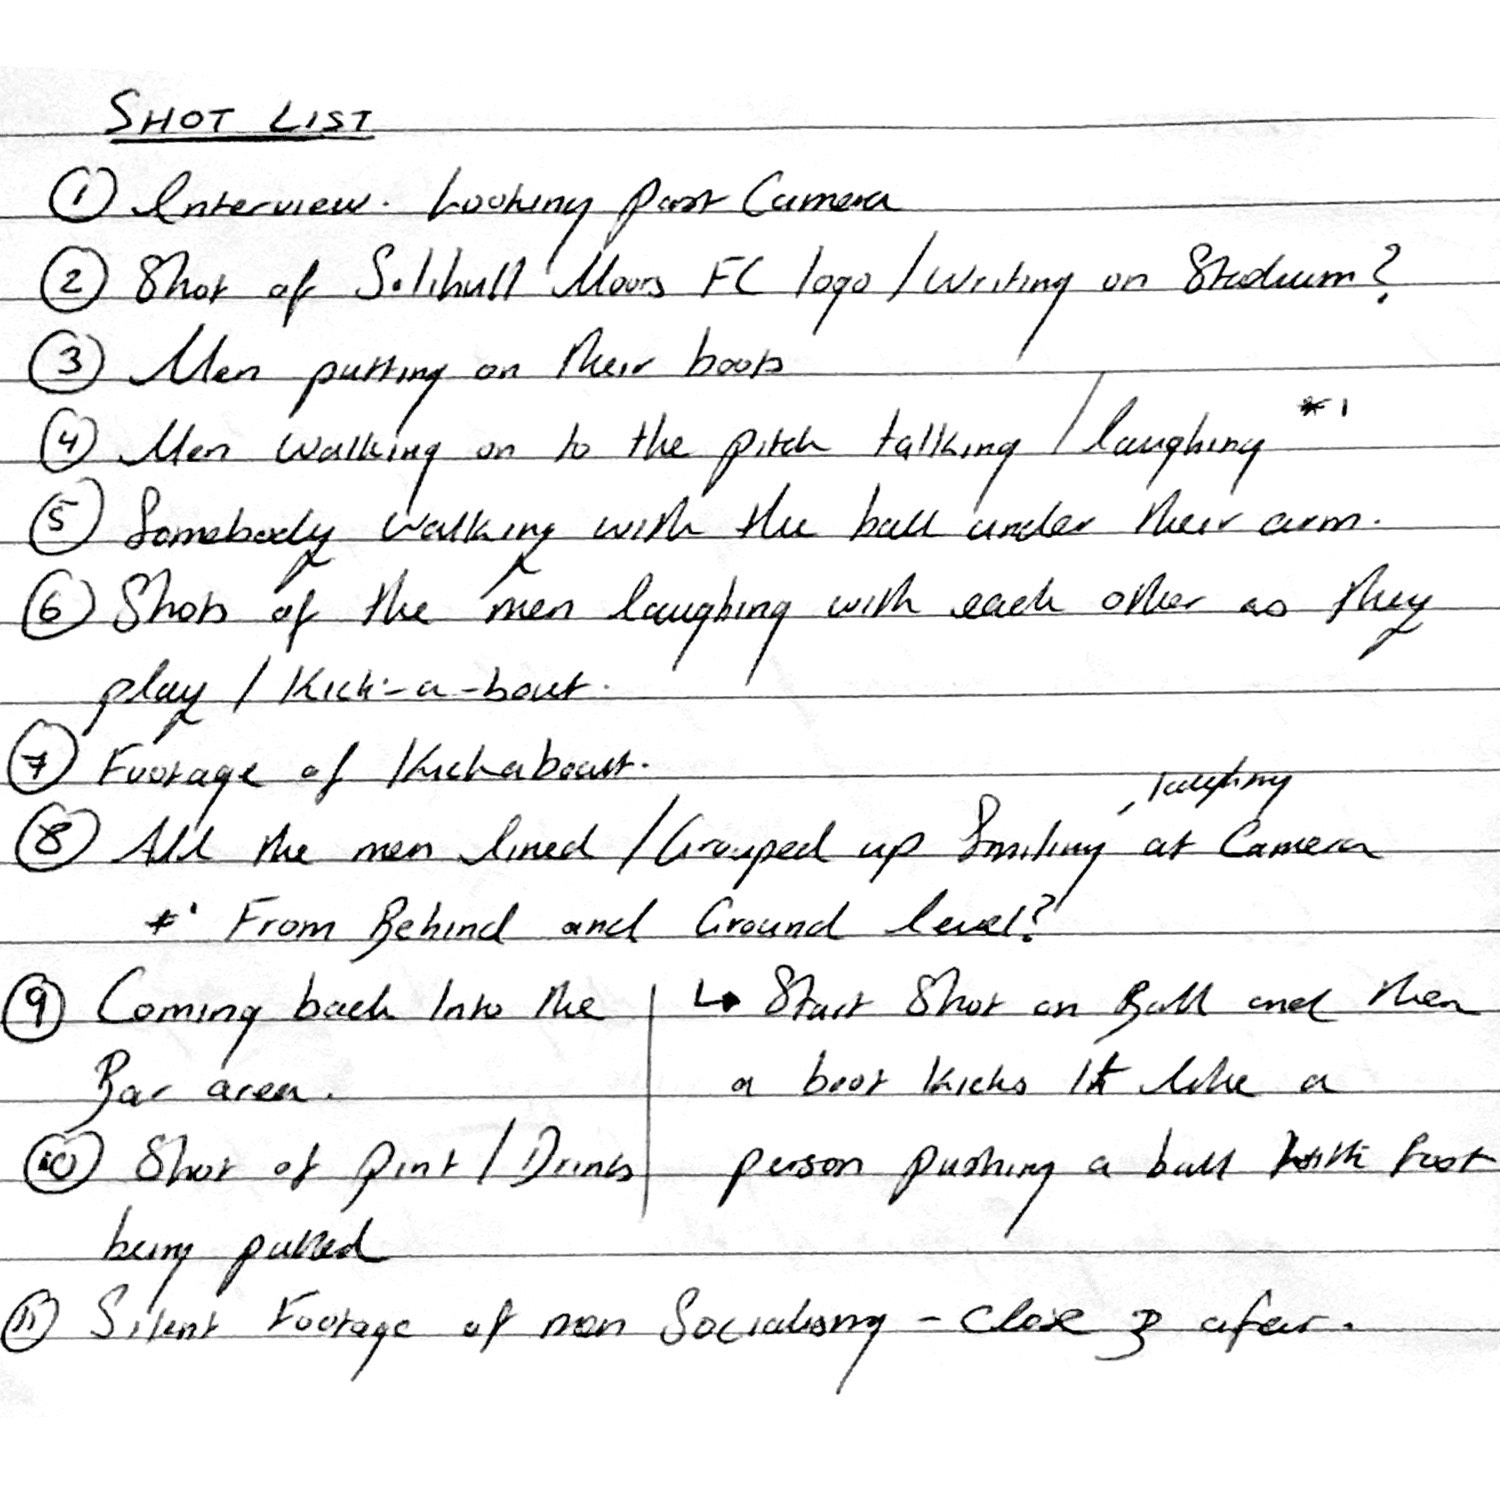 SHOT LIST
① Interview. Looking past Camera
② Shot of Solihull Moors FC logo / Writing on Stadium?
③ Men putting on their boots
④ Men walking on to the pitch talking / laughing *1
⑤ Somebody walking with the ball under their arm.
⑥ Shots of the men laughing with each other as they
play / Kick-a-bout.
⑦ Footage of Kickabout.
, laughing
⑧ All the men lined / Grouped up Smiling at Camera
*1 From Behind and Ground level?
⑨ Coming back Into the
Bar area.
⑩ Shot of Pint / Drinks
being pulled
↳ Start Shot on Ball and then
a boot kicks It like a
person pushing a ball with foot
⑪ Silent Footage of men Socialising - Close & afar.